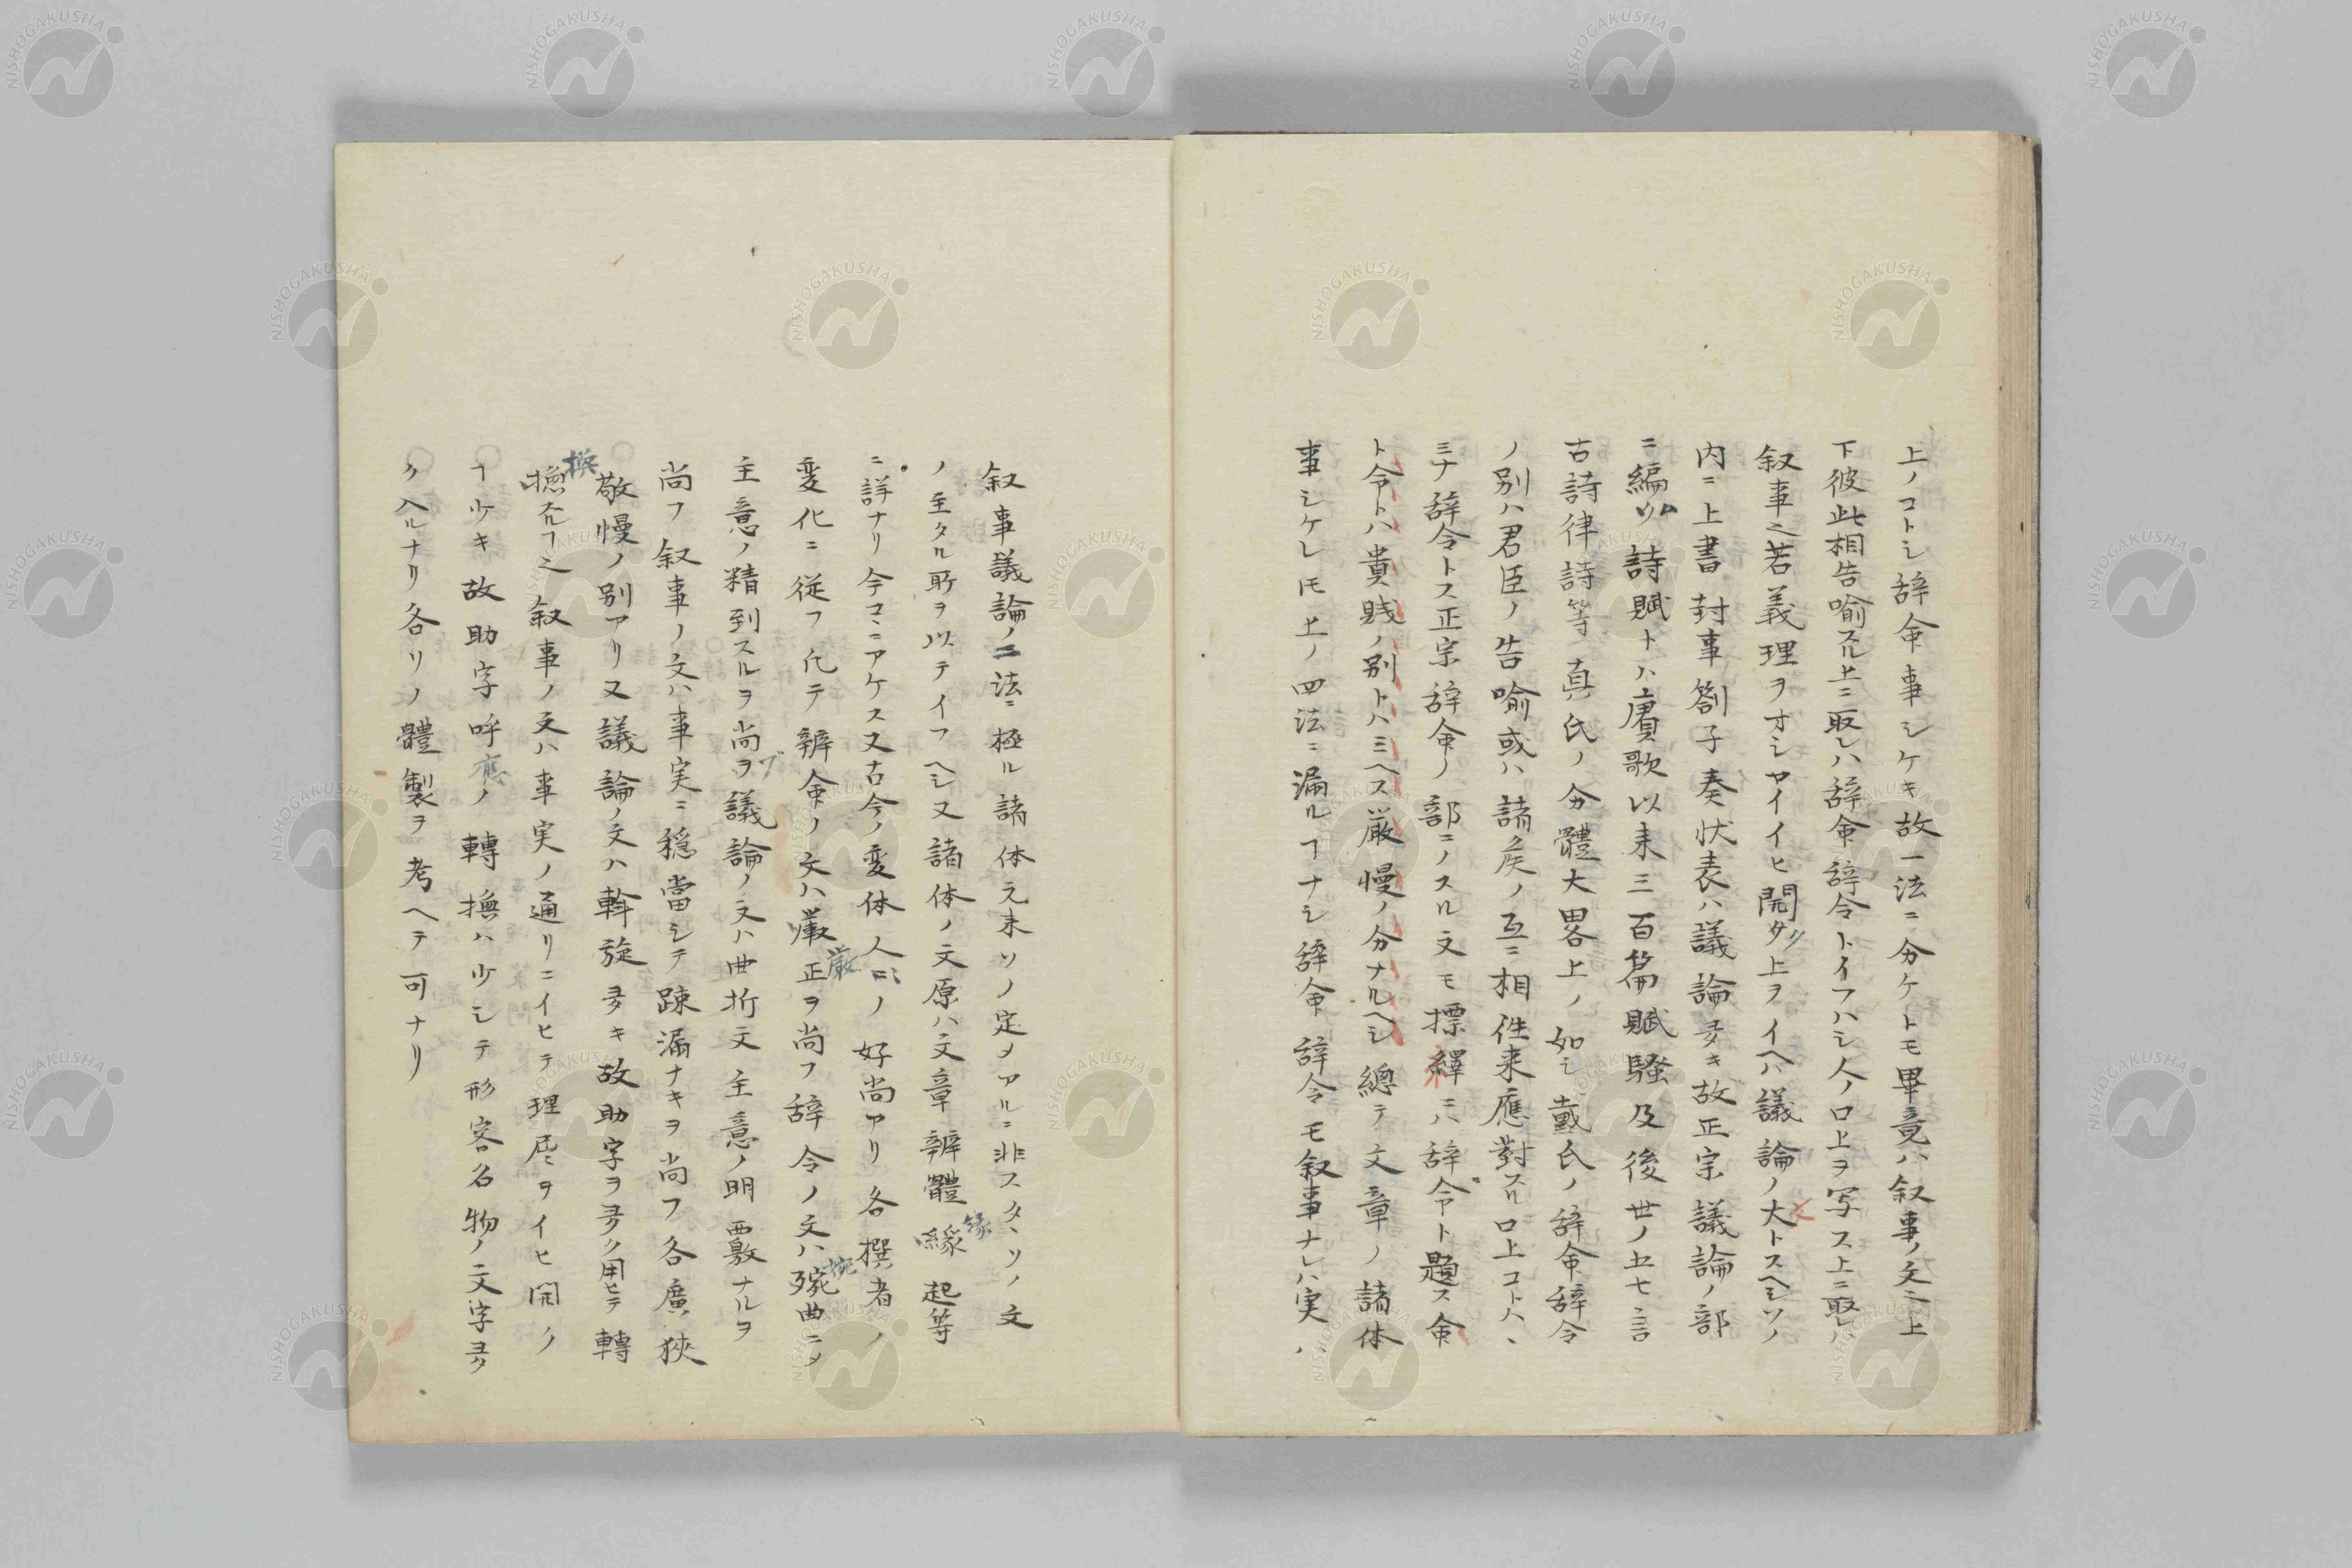 上ノコトシ辞命事シケキ故一法ニ分ケトモ畢竟ハ叙事ノ文ニ上
下彼此相告喩スル上ニ取レハ辞命辞令トイフハシ人ノ口上ヲ写ス上ニ取レハ
叙事之若義理ヲオシヤイイヒ開タリ上ヲイヘハ議論ノ大トスヘシソノ
内ニ上書封事劄子奏状表ハ議論多キ故正宗議論ノ部
ニ編ツム詩賦トハ賡歌以来三百篇賦騒及後世ノ五七言
古詩律詩等真氏ノ分體大畧上ノ如シ戴氏ノ辞命辞令
ノ別ハ君臣ノ告喩或ハ諸矦ノ互ニ相往来應對スル口上コトハヽ
ミナ辞令トス正宗辞命ノ部ニノスル文モ標繹ニハ辞令ト題ス命
ト令トハ貴賎ノ別トハミヘス厳慢ノ分ナルヘシ總テ文章ノ諸体
事シケレ𪜈上ノ四法ニ漏ルヿナシ辞命辞令モ叙事ナレハ実ハ
叙事議論ノ二法ニ極ル諸体元来ソノ定メアルニ非スタヽソノ文
ノ主タル所ヲ以テイフヘシ又諸体ノ文原ハ文章辨體縁起等
ニ詳ナリ今コヽニアケス又古今ノ変体人ニヽノ好尚アリ各撰者ノ
変化ニ従フ凡テ辨命ノ文ハ厳正ヲ尚フ辞令ノ文ハ婉曲ニメ
主意ノ精到スルヲ尚ヲ議論ノ文ハ曲折文主意ノ明覈ナルヲ
尚フ叙事ノ文ハ事実ニ穏當シテ踈漏ナキヲ尚フ各廣狹
敬慢ノ別アリ又議論ノ文ハ斡旋多キ故助字ヲ多ク用ヒテ轉
撫スルヿ之叙事ノ文ハ事実ノ通リニイヒテ理屈ヲイヒ開ノ
ヿ少キ故助字呼應ノ轉撫ハ少シテ形容名物ノ文字ヨク
ク入ルナリ各リノ體製ヲ考ヘテ可ナリ
NISHOGAKUSHA